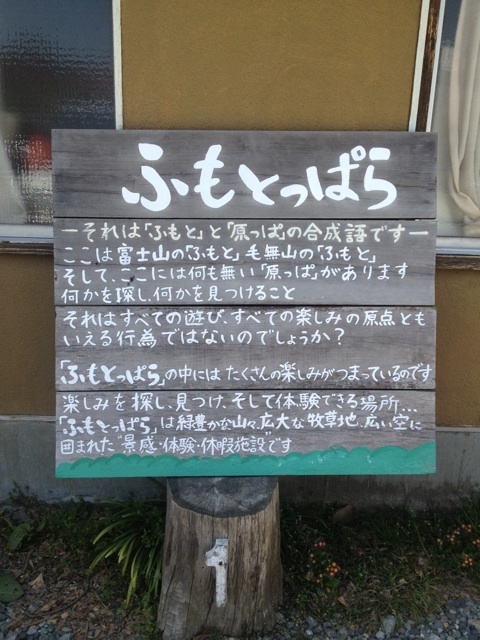 ふもとっぱら
ーそれは「ふもと」と「原っぱ」の合成語ですー
ここは富士山の「ふもと」毛無山の「ふもと」
そして、ここには何も無い「原っぱ」があります
何かを探し、何かを見つけること
それはすべての遊び、すべての楽しみの原点とも
いえる行為ではないのでしょうか？
「ふもとっぱら」の中にはたくさんの楽しみがつまっているのです
楽しみを探し、見つけ、そして体験できる場所…
「ふもとっぱら」は緑豊かな山々、広大な牧草地、広い空に
囲まれた"景感・体験・休暇施設"です
1